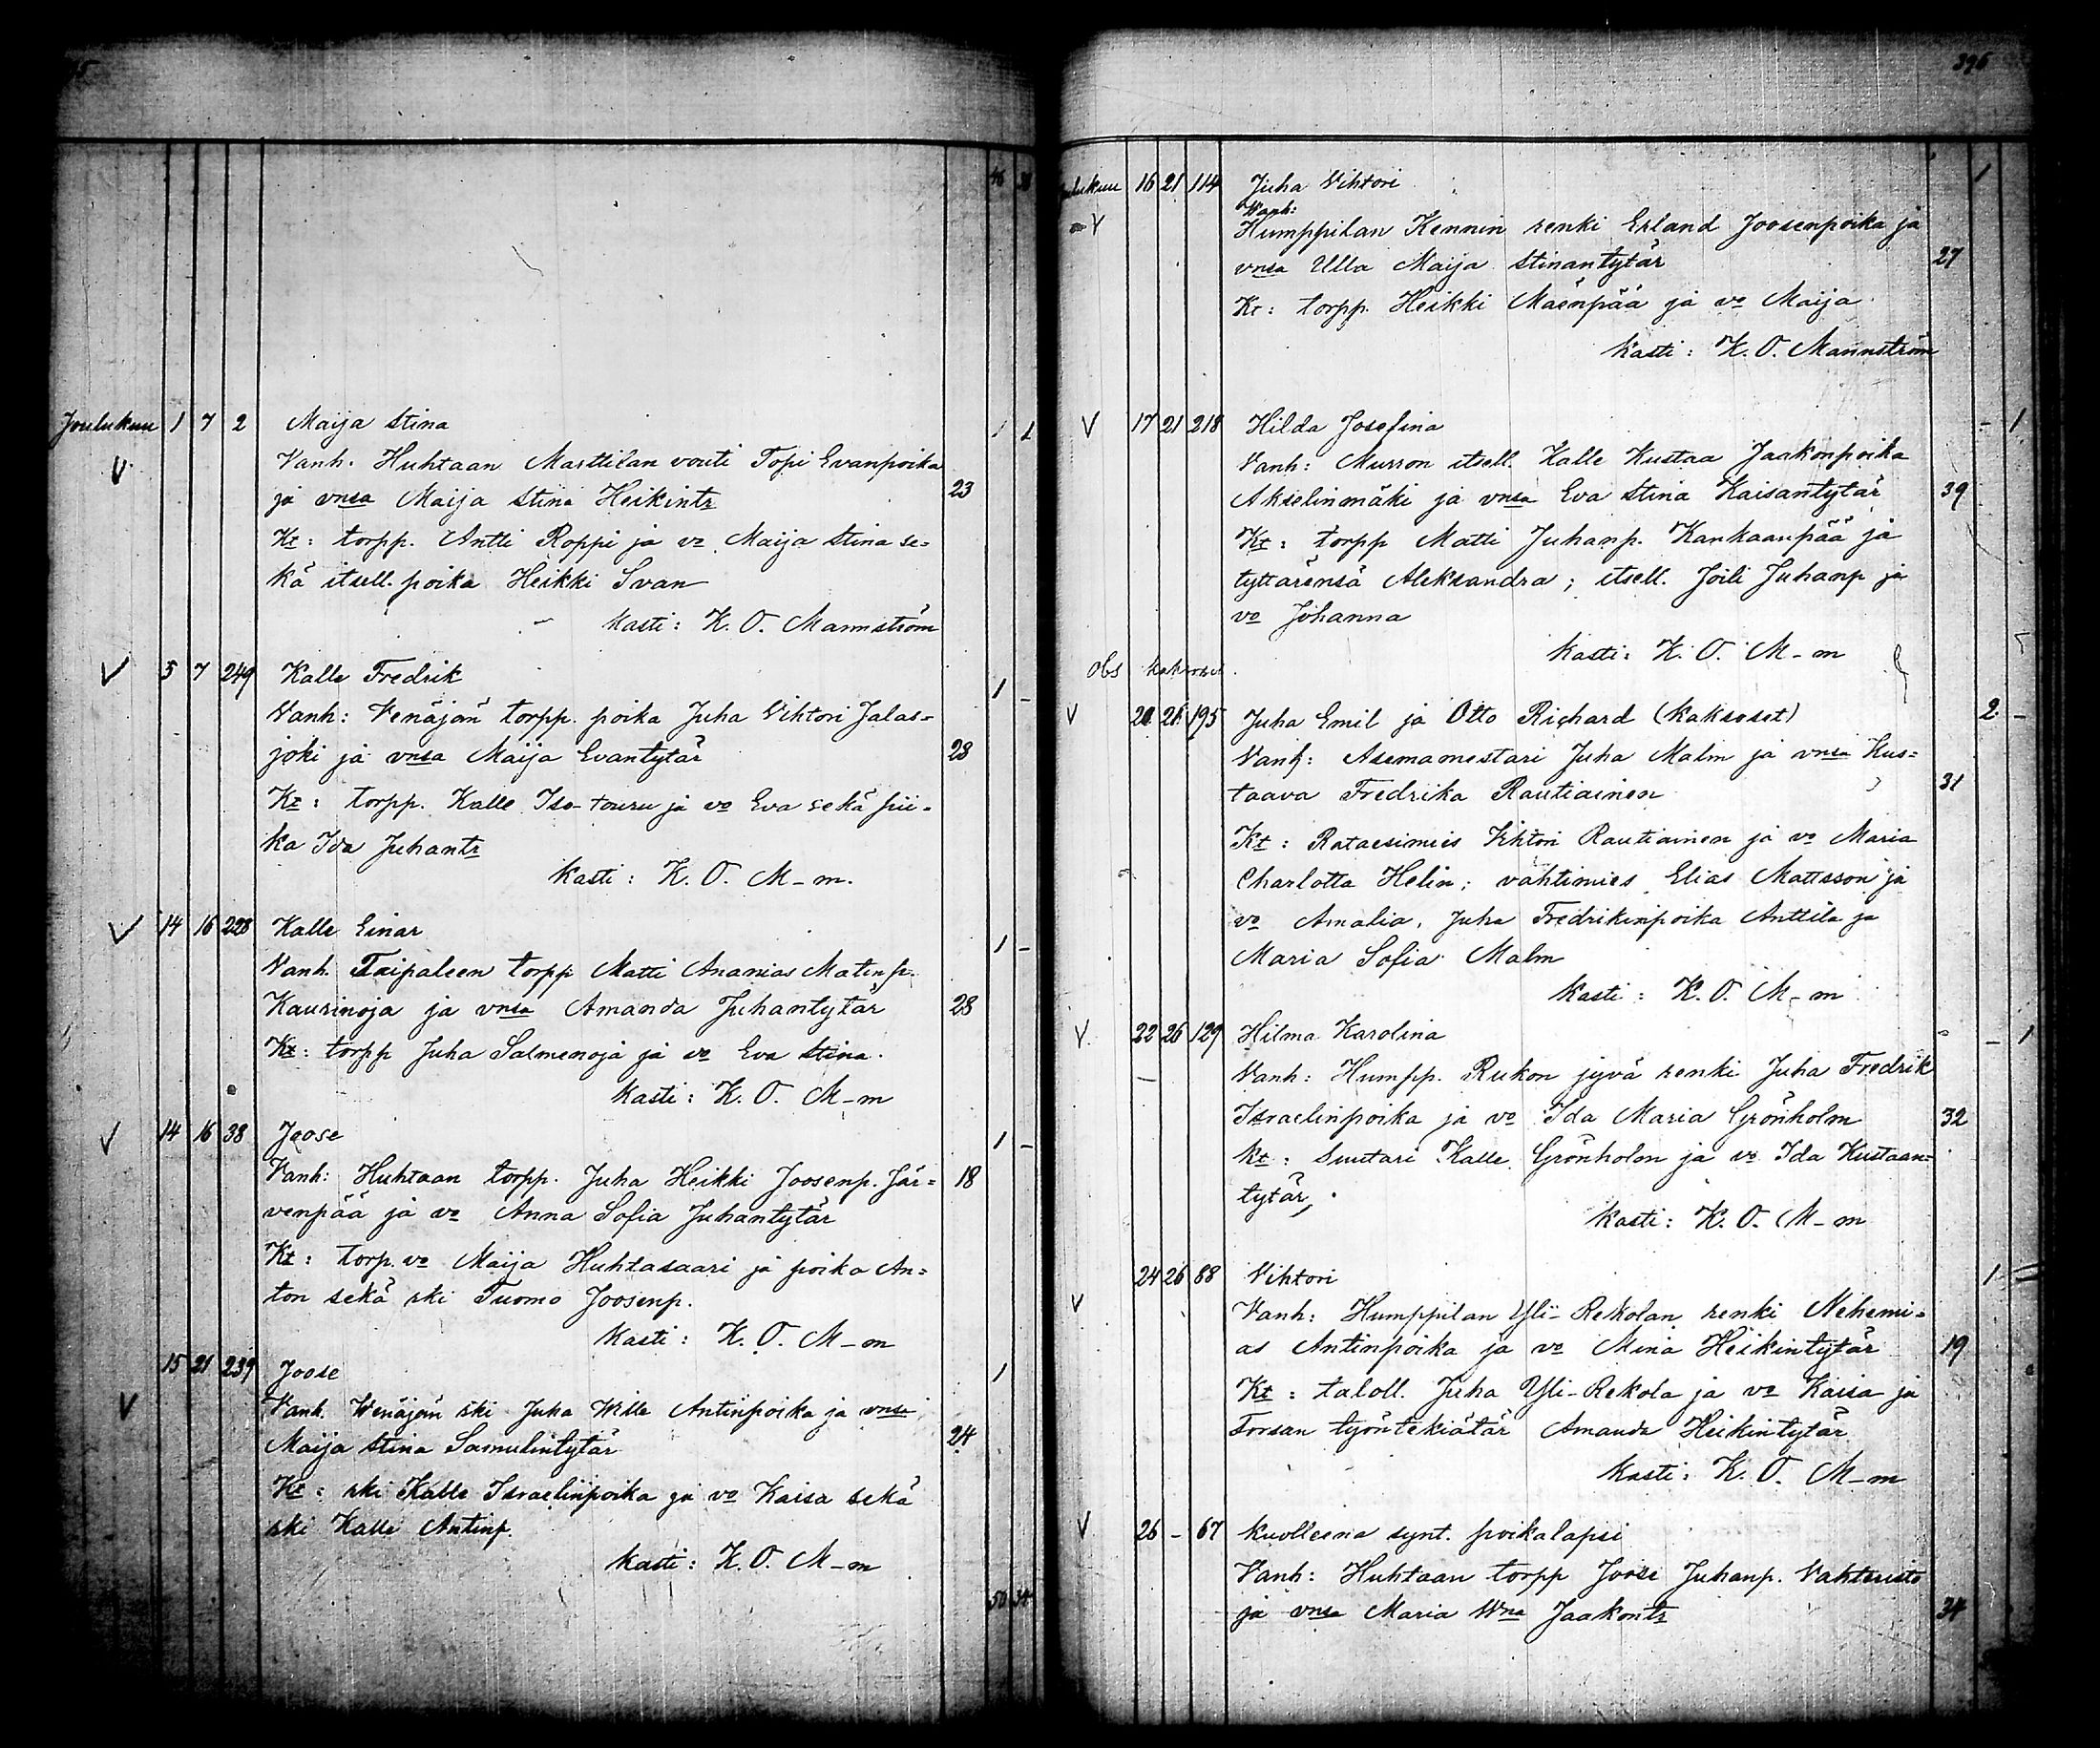 46
Joulukuu 1 7 2 Maija Stina 1
Vanh. Huhtaan Marttilan vouti Topi Evanpoika
ja vnsa Maija Stina Heikintr 23
Kt: torpp. Antti Roppi ja vo Maija Stina se=
kä itsell. poika Heikki Svan
Kasti: K. O. Mannström
5 7 249 Kalle Fredrik 1 -
Vanh: Venäjän torpp. poika Juha Vihtori Jalas=
joki ja vnsa Maija Evantytär 28
Kt: torpp. Kalle Iso-touru ja vo Eva sekä pii=
ka Ida Juhantr
Kasti: K. O. M-m.
14 16 228 Kalle Einar 1 -
Vanh. Taipaleen torpp Matti Ananias Matinp.
Kaurinoja ja vnsa Amanda Juhantytär 28
Kt: torpp Juha Salmenoja ja vo Eva Stina.
Kasti: K. O. M-m
14 16 38 Joose 1 -
Vanh: Huhtaan torpp. Juha Heikki Joosenp. Jär= 18
venpää ja vo Anna Sofia Juhantytär
Kt: torp. vo Maija Huhtasaari ja poika An=
ton sekä rki Tuomo Joosenp.
Kasti: K. O. M-m
15 21 239 Joose 1
Vanh. Wenäjän rki Juha Wille Antinpoika ja vnsa
Maija Stina Samulintytär 24
Kt: rki Kalle Israelinpoika ja vo Kaisa sekä
rki Kalle Antinp.
Kasti: K. O. M-m
50 34
396
Joulukuu 16 21 114 Juha Vihtori 1
Vanh:
Humppilan Kennin renki Erland Joosenpoika ja
vnsa Ulla Maija Stinantytär 27
Kt: torpp. Heikki Mäenpää ja vo Maija
Kasti: K. O. Mannström
17 21 218 Hilda Josefina - 1
Vanh: Murron itsell. Kalle Kustaa Jaakonpoika
Akselinmäki ja vnsa Eva Stina Kaisantytär 39
Kt: torpp Matti Juhanp. Kankaanpää ja
tyttärensä Aleksandra; itsell. Joili Juhanp ja
vo Johanna
Kasti: K. O. M-m
obs kaksoset.
20 26 195 Juha Emil ja Otto Richard (kaksoset) 2 -
Vanh: Asemamestari Juha Malm ja vnsa Kus=
taava Fredrika Rautiainen 31
Kt: Rataesimies Vihtori Rautiainen ja vo Maria
Charlotta Helin; vahtimies Elias Mattsson ja
vo Amalia, Juha Fredrikinpoika Anttila ja
Maria Sofia Malm
Kasti: K. O. M-m
22 26 129 Hilma Karolina - 1
Vanh: Humpp. Rukon jyvä renki Juha Fredrik
Israelinpoika ja vo Ida Maria Grönholm 32
kt: Suutari Kalle Grönholm ja vo Ida Kustaan=
tytär,
Kasti: K. O. M-m
24 26 88 Vihtori 1
Vanh: Humppilan Yli-Rekolan renki Nehemi=
as Antinpoika ja vo Mina Heikintytär 19
Kt: taloll. Juha Yli-Rekola ja vo Kaisa ja
Forsan työntekiätär Amanda Heikintytär
Kasti: K. O. M-m
26 - 67 kuolleena synt. poikalapsi
Vanh: Huhtaan torpp Joose Juhanp. Vahteristo
ja vnsa Maria Wna Jaakontr 34